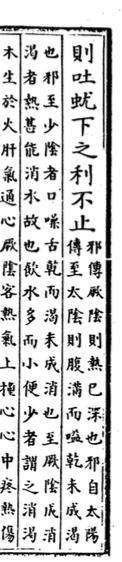 則吐蚘下之利不止
邪傳厥陰則熱已深也邪自太陽
傳至太陰則腹滿而嗌乾未成渴
也邪至少陰者口燥舌乾而渴未成消也至厥陰成消
渴者熱甚能消水故也飲水多而小便少者謂之消渴
木生於火肝氣通心厥陰客熱氣上撞心心中疼熱傷